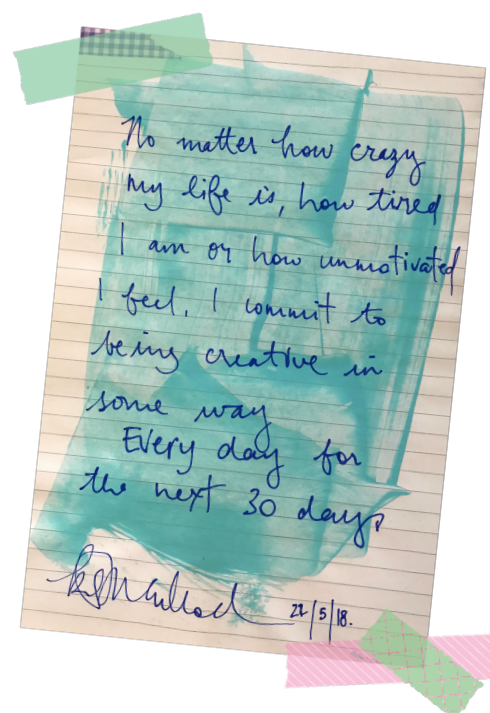 No matter how crazy
my life is, how tired
I am or how unmotivated
I feel, I commit to
being creative in
some way
Every day for
the next 30 days
22/5/18.